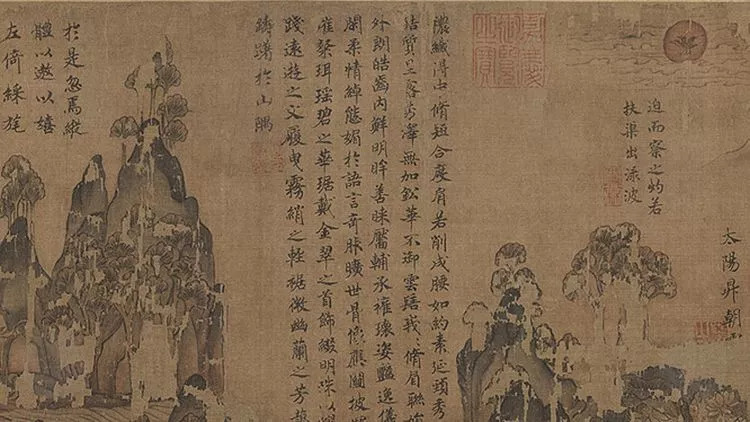 太陽昇朝
迫而察之灼若
扶渠出渌波
嘉慶御覽之寶
濃纖得中脩短合度肩若削成腰如約素延頸秀
質呈露芳澤無加鈆華不御雲髻我〻脩眉聯
外朗皓齒內鮮明眸善睞靨輔承權瓌姿豔逸儀
閑柔情綽態媚於語言奇服曠世骨像應圖披
璀粲珥瑶碧之華琚戴金翠之首飾綴明珠以
踐遠遊之文履曳霧綃之輕裾微幽蘭之芳
躊躇於山隅
於是忽焉縱
體以遨以嬉
左倚綵旄